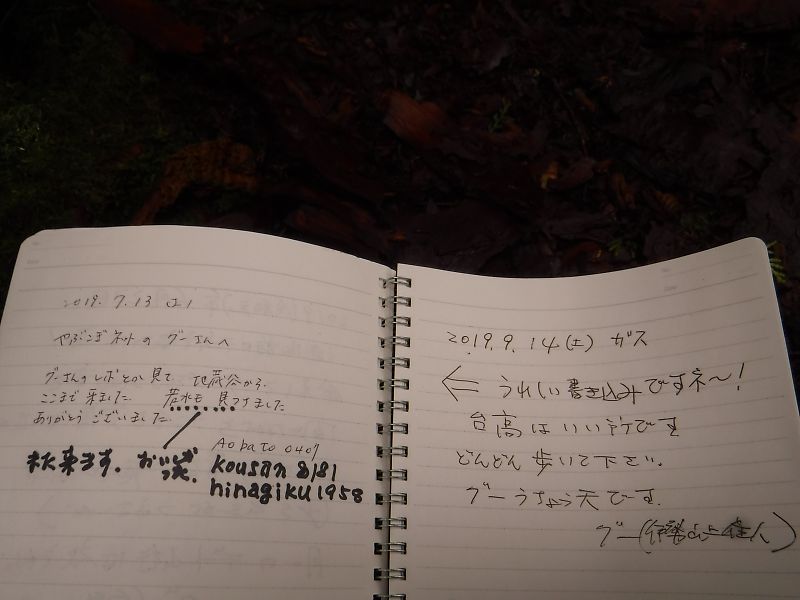 2019. 7.13 (土)
やぶこぎネットの グーさんへ
グーさんのレポとか見て 地蔵谷から
ここまで 来ました 若水も 見つけました
ありがとう ございました
Aobato 0407
秋来ます。
kousan 8181
hinagiku 1958
2019. 9. 14 (土) ガス
← うれしい書き込みですネ〜!
台高は いい所です
どんどん 歩いて下さい。
グーうちょう天です。
グー